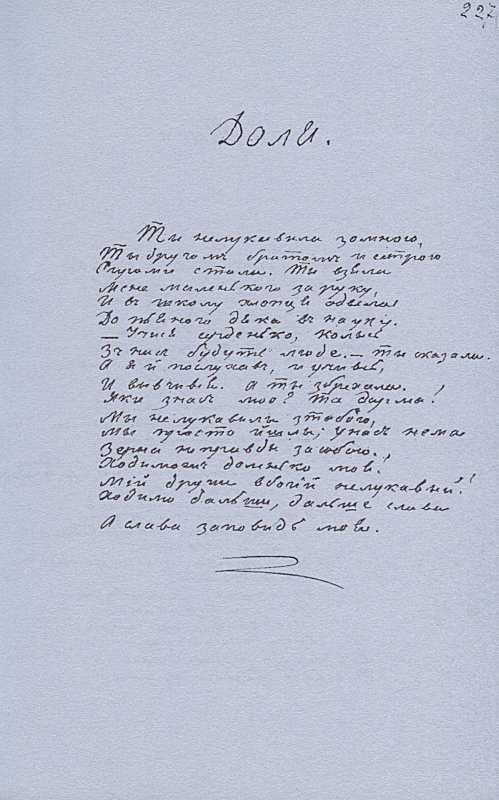 227
Доля.
Ти нелукавила зомною,
Ты другомъ братомъ и сестрою
Сиромі стала. Ты взяла
Мене маленького за руку,
И въ школу хлопця одвела
До пьяного дяка въ науку.
— Учись серденько, колысь
Зъ насъ будуть люде. — ты сказала.
А я й послухавъ, и учивсь,
И вывчивсь. а ты збрехала.
Яки зъ насъ люде? Та дарма!
Мы нелукавили зтобою,
Мы просто йшлы; у насъ нема
Зерна неправды засобою.,
Ходимочъ доленько моя.,
Мій друже вбогій нелукавий!
Ходимо дальше, дальше слава
А слава заповидь моя.